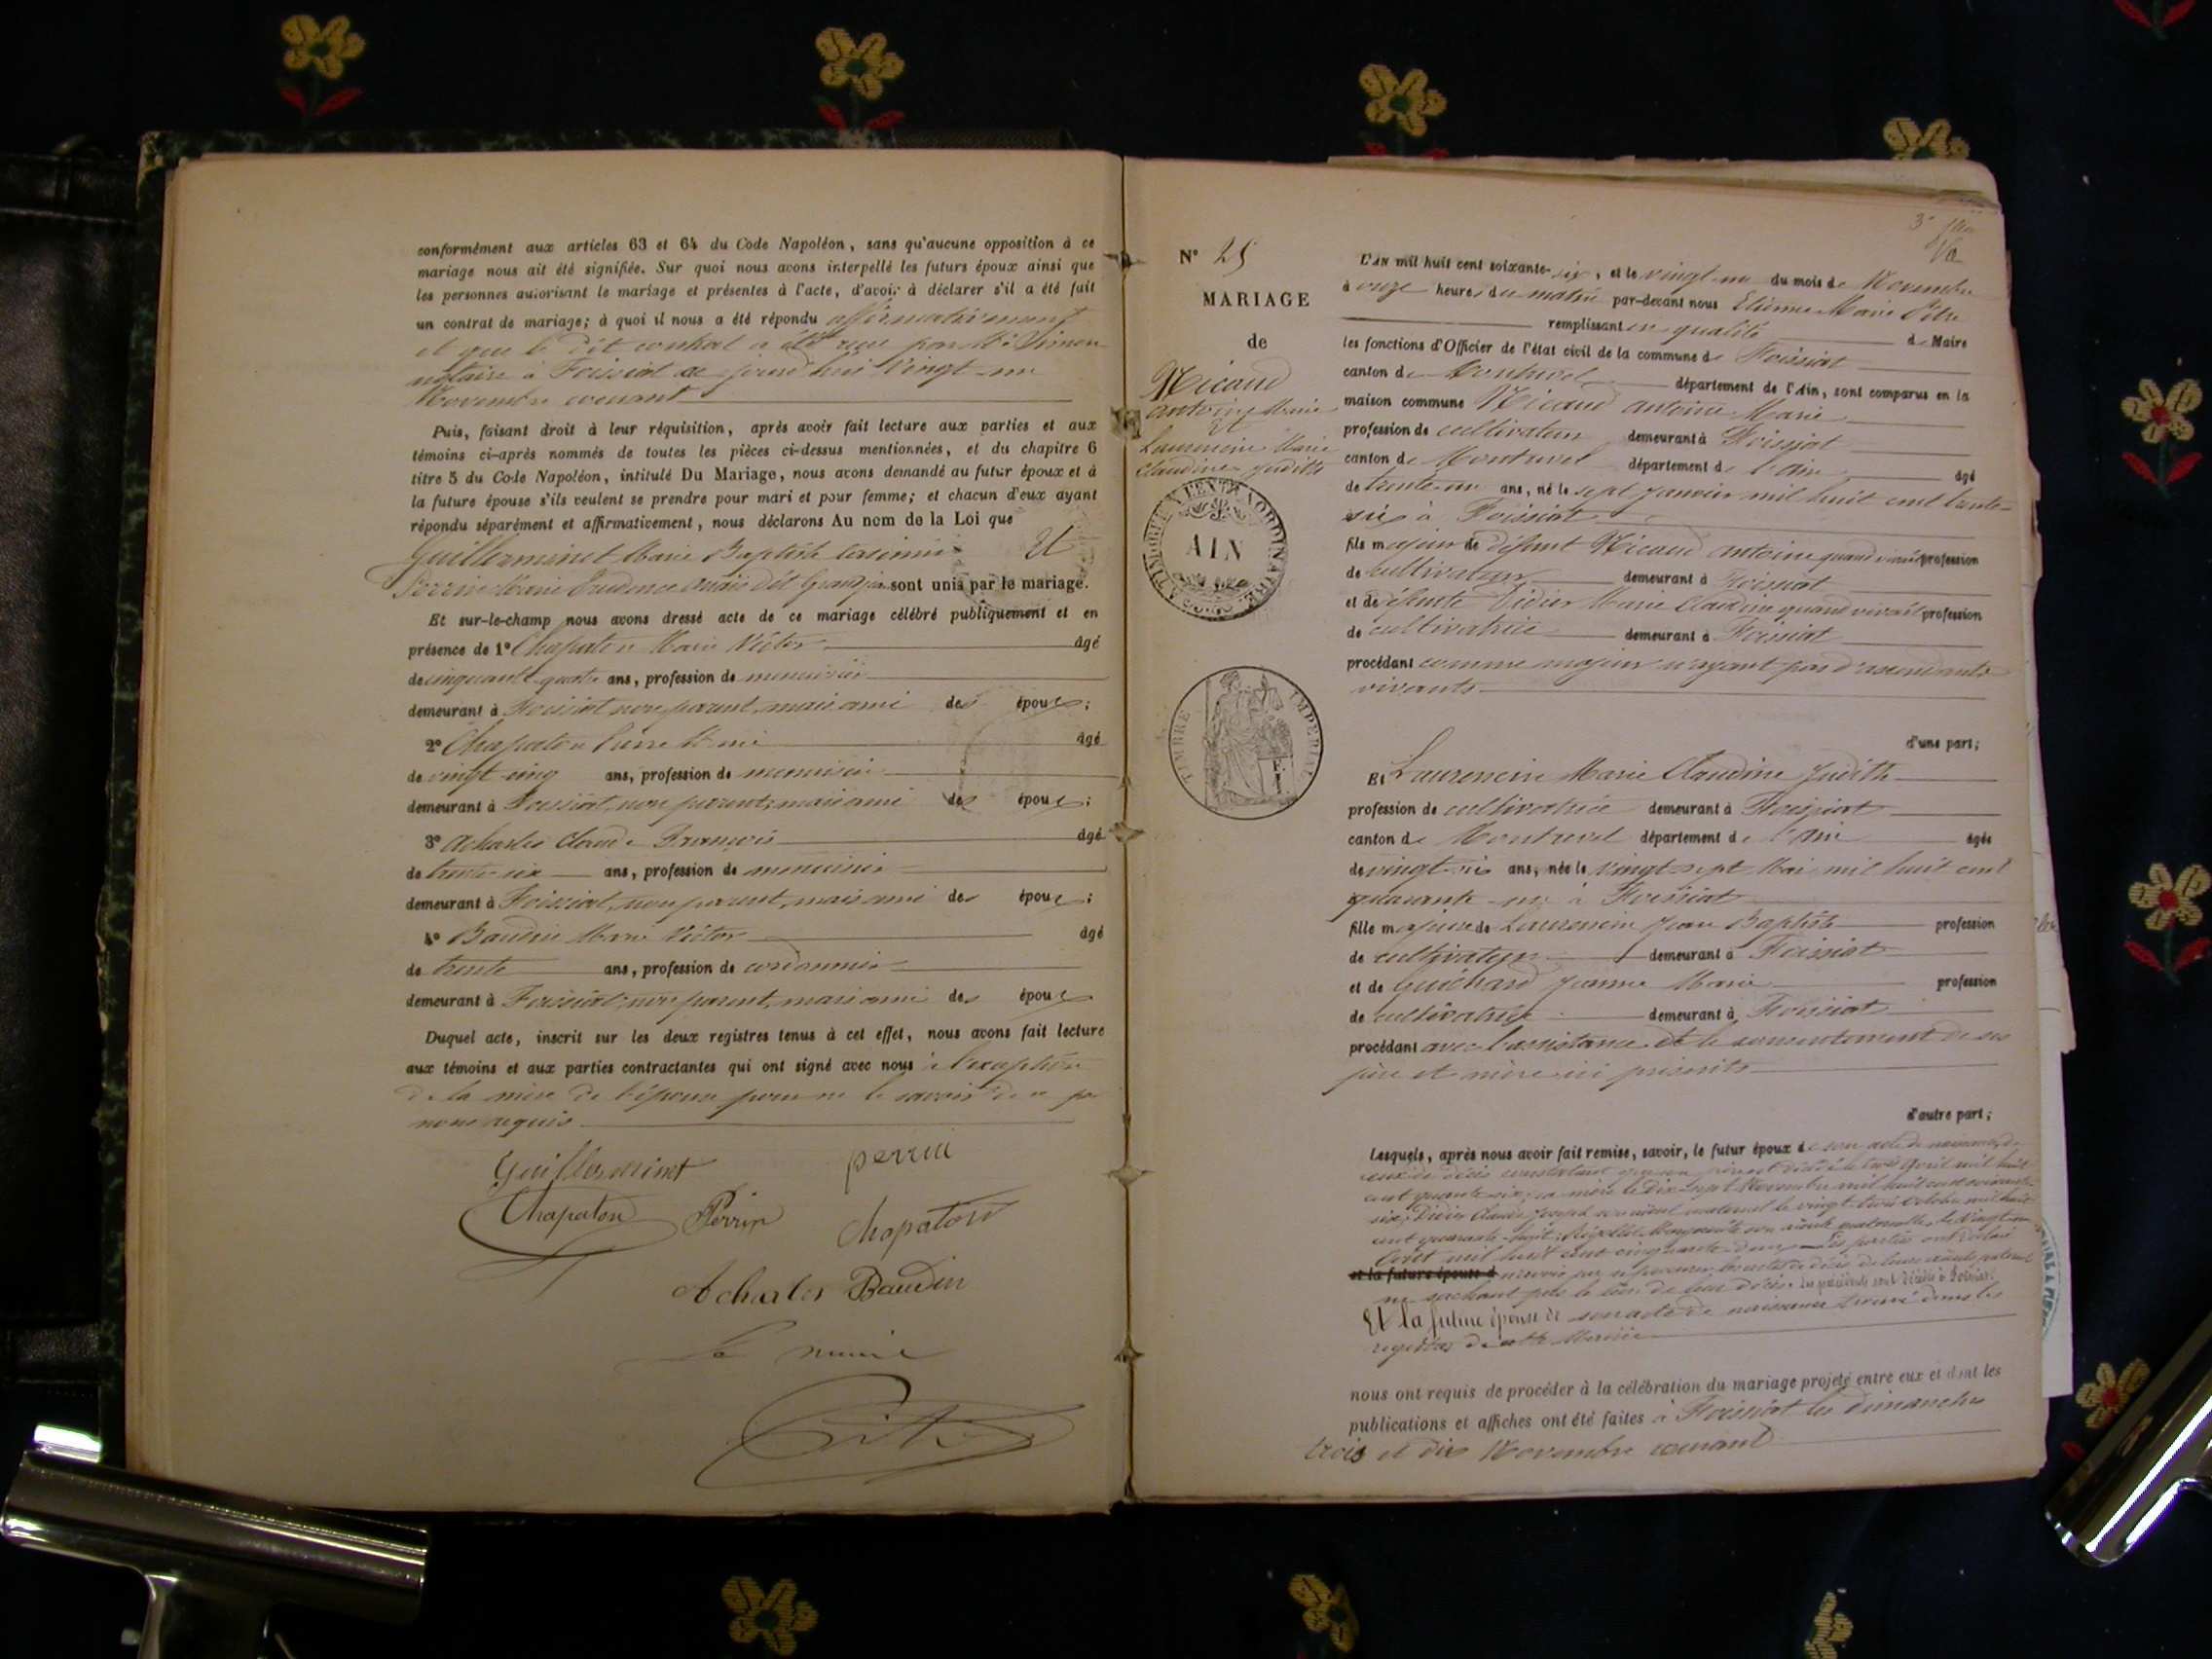 conformément aux articles 63 et 64 du Code Napoléon, sans qu'aucune opposition à ce
mariage nous ait été signifiée. Sur quoi nous avons interpellé les futurs époux ainsi que
les personnes autorisant le mariage et présentes à l'acte, d'avoir à déclarer s'il a été fait
un contrat de mariage; à quoi il nous a été répondu affirmativement
et que le dit contrat a été reçu par Me Simon
notaire à Foissiat ce jourd'hui vingt-un
Novembre courant
Puis, faisant droit à leur réquisition, après avoir fait lecture aux parties et aux
témoins ci-après nommés de toutes les pièces ci-dessus mentionnées, et du chapitre 6
titre 5 du Code Napoléon, intitulé Du Mariage, nous avons demandé au futur époux et à
la future épouse s'ils veulent se prendre pour mari et pour femme; et chacun d'eux ayant
répondu séparément et affirmativement, nous déclarons Au nom de la Loi que
Guillerminet Marie Baptiste Casimir Et
Perrin Prudence sont unis par le mariage.
Et sur-le-champ nous avons dressé acte de ce mariage célébré publiquement et en
présence de 1° Chapaton Marie Victor âgé
de cinquante-quatre ans, profession de menuisier
demeurant à Foissiat non parent, mais ami des époux;
2° Chapaton Pierre âgé
de vingt cinq ans, profession de menuisier
demeurant à Foissiat, non parent, mais ami des époux;
3° Acharles Claude François âgé
de trente six ans, profession de menuisier
demeurant à Foissiat, non parent, mais ami des époux;
4° Baudin Marie Victor âgé
de trente ans, profession de cordonnier
demeurant à Foissiat, non parent, mais ami des époux
Duquel acte, inscrit sur les deux registres tenus à cet effet, nous avons fait lecture
aux témoins et aux parties contractantes qui ont signé avec nous à l'exception
de la mère de l'épouse pour ne le savoir de ce par
nous requis
Guillerminet perrin
Chapaton Perrin Chapaton
Acharles Baudin
Le maire
N° 25
MARIAGE
de
Nicaud
Antoine Marie
Et
Laurencin Marie
Claudine Judith
TIMBRE EXTRAORDINAIRE
AIN
TIMBRE IMPERIAL
L'AN mil huit cent soixante-six, et le vingt-un du mois de Novembre
à onze heures du matin par-devant nous Etienne Marie Pitre
remplissant en qualité de Maire
les fonctions d'Officier de l'état civil de la commune de Foissiat
canton de Montrevel département de l'Ain, sont comparus en la
maison commune Nicaud Antoine Marie
profession de cultivateur demeurant à Foissiat
canton de Montrevel département de l'ain âgé
de trente-un ans, né le sept Janvier mil huit cent trente-
six à Foissiat
fils majeur de défunt Nicaud Antoine quand vivait profession
de cultivateur demeurant à Foissiat
et de défunte Didier Marie Claudine quand vivait profession
de cultivatrice demeurant à Foissiat
procédant comme majeur n'ayant pas d'ascendants
vivants
d'une part;
Et Laurencin Marie Claudine Judith
profession de cultivatrice demeurant à Foissiat
canton de Montrevel département de l'ain âgée
de vingt-six ans, née le vingt-sept Mai mil huit cent
quarante à Foissiat
fille majeure de Laurencin Jean Baptiste profession
de cultivateur demeurant à Foissiat
et de Guichard Jeanne Marie profession
de cultivatrice demeurant à Foissiat
procédant avec l'assistance et le consentement de ses
père et mère ici présents
d'autre part;
Lesquels, après nous avoir fait remise, savoir, le futur époux de son acte de naissance, de
ceux de décès constatant que son père est décédé le trois Avril mil huit
cent quarante-six; sa mère le dix-sept Novembre mil huit cent soixante-
six; Didier Claude Joseph son aïeul maternel le vingt-trois Octobre mil huit
cent quarante-huit; Marguerite son aïeule maternelle, le vingt-un
Août mil huit cent cinquante-deux. Les parties ont déclaré
et la future épouse d n'avoir pu se procurer les actes de décès de leurs aïeuls paternels
ne sachant pas le lieu de leur décès. Les précédents sont décédés à Foissiat.
Et la future épouse de son acte de naissance trouvé dans les
registres de cette Mairie
nous ont requis de procéder à la célébration du mariage projeté entre eux et dont les
publications et affiches ont été faites à Foissiat les dimanches
trois et dix Novembre courant